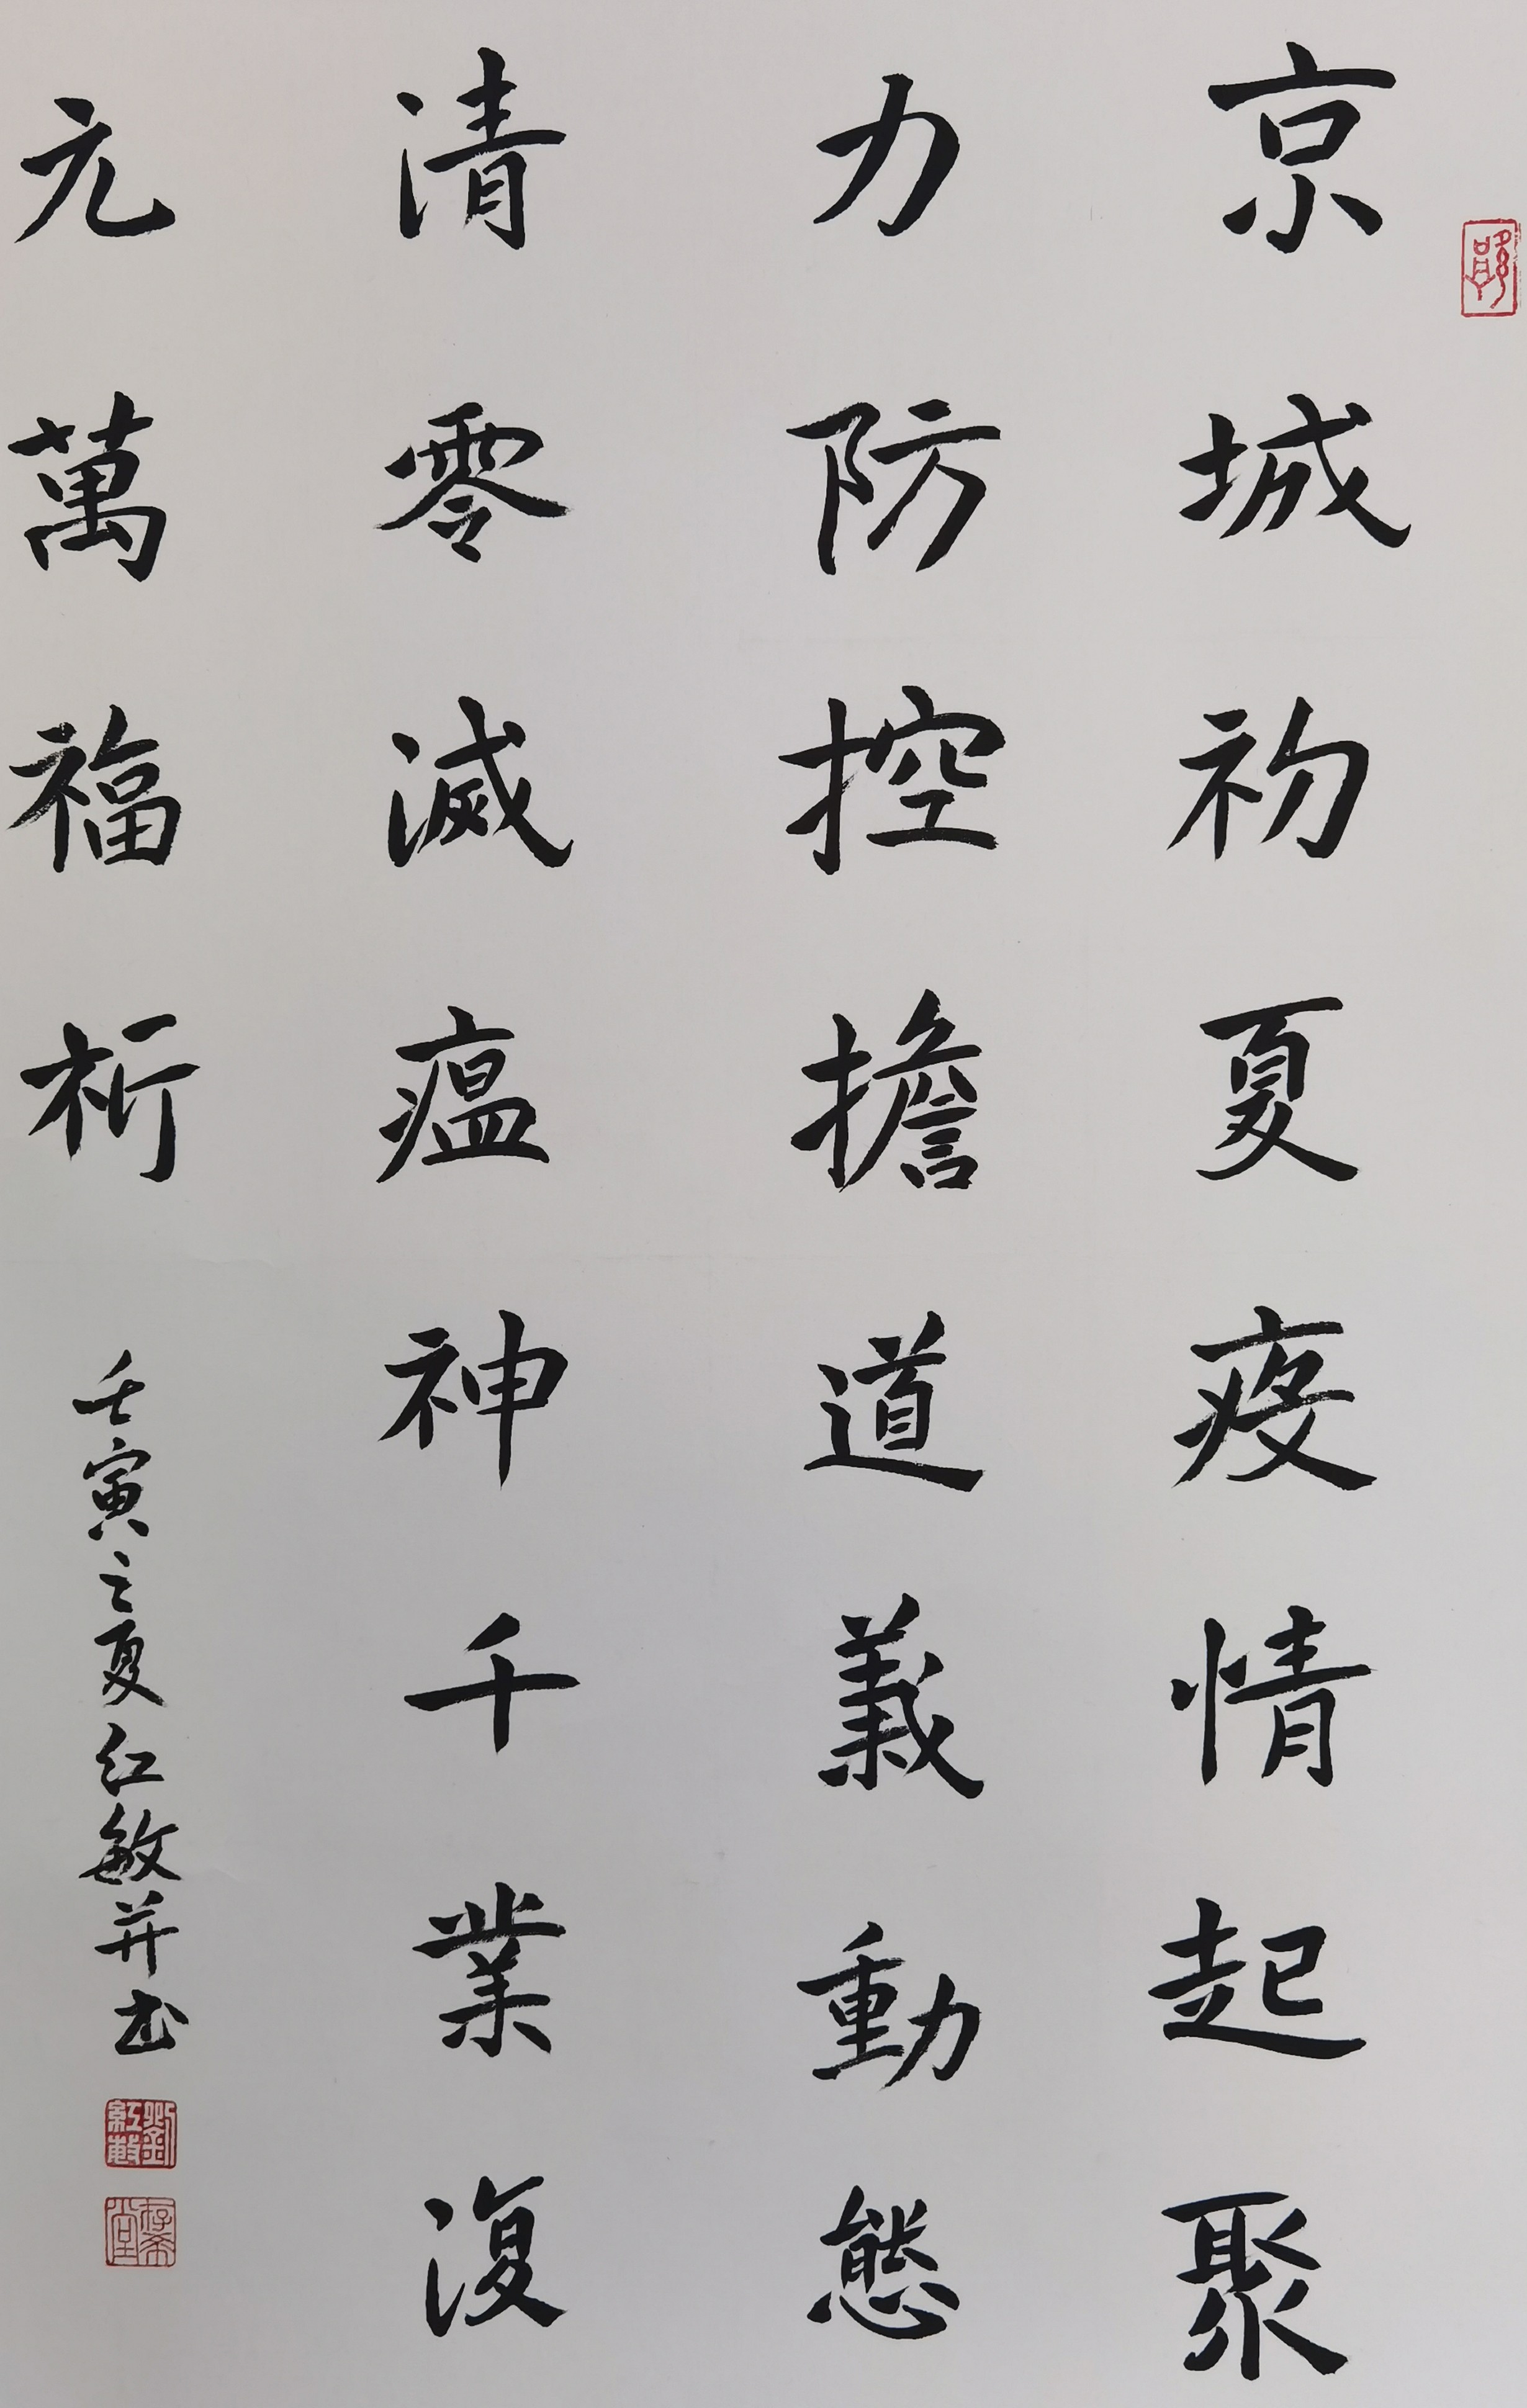 京城初夏疫情起聚
力防控擔道義動態
清零滅瘟神千業復
元萬福祈
壬寅之夏红敏并书
劉紅敏